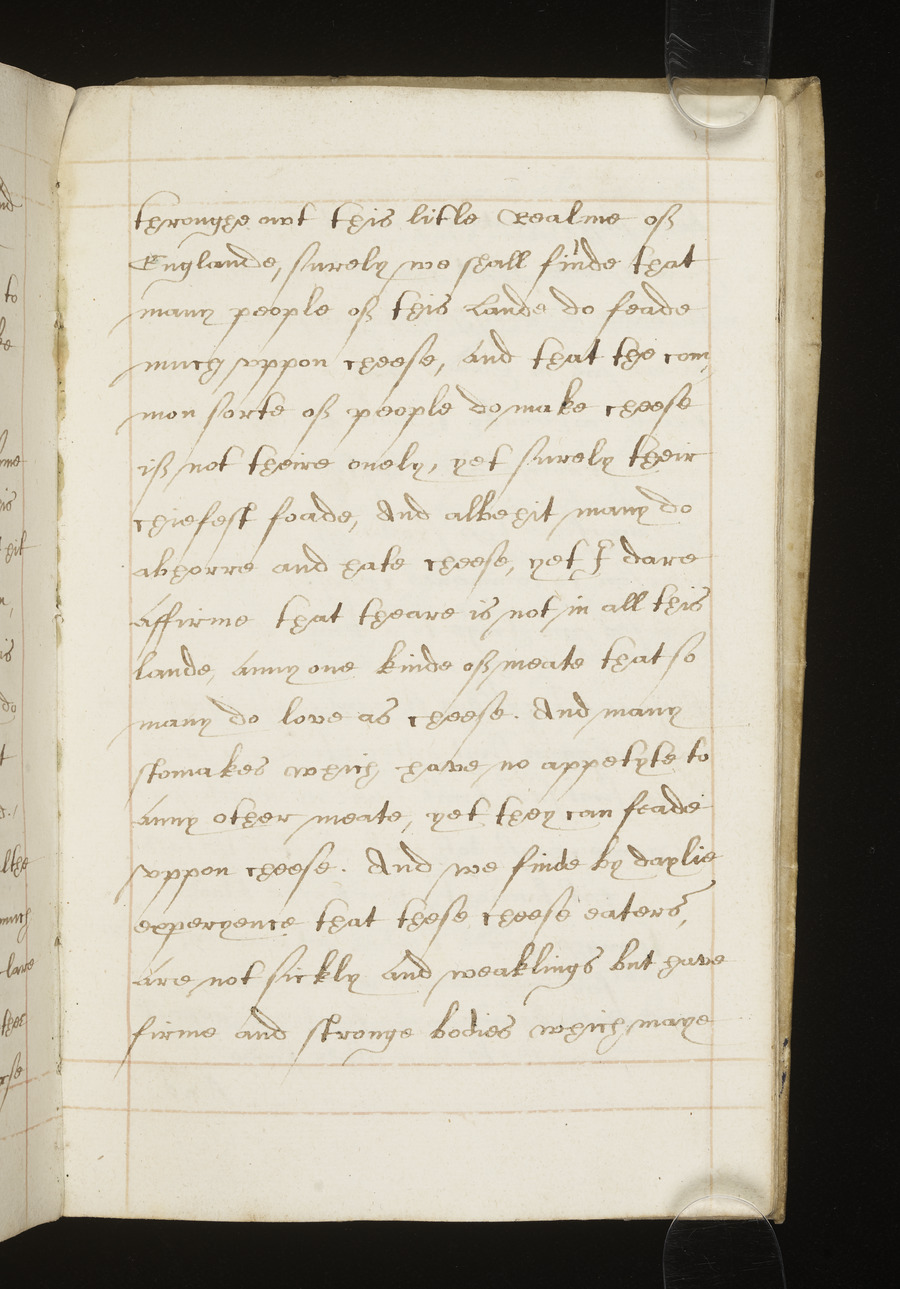 throughe owt this litle Realme off
Englande, surely we shall finde that
many people off this Lande do feade
much vppon cheese, And that the com,
mon sorte off people do make cheese
iff not theire onely, yet surely their
chiefest foade, And albehit many do
abhorre and hate cheese, yet I dare
Affirme that theare is not in all this
lande, Anny one kinde off meate that so
many do love as cheese. And many
stomakes which have no appetyte to
Anny other meate, yet they can feade
vppon cheese. And we finde by daylie
experyence that these cheese eaters,
Are not sickly And weaklings but have
firme and stronge bodies which maye